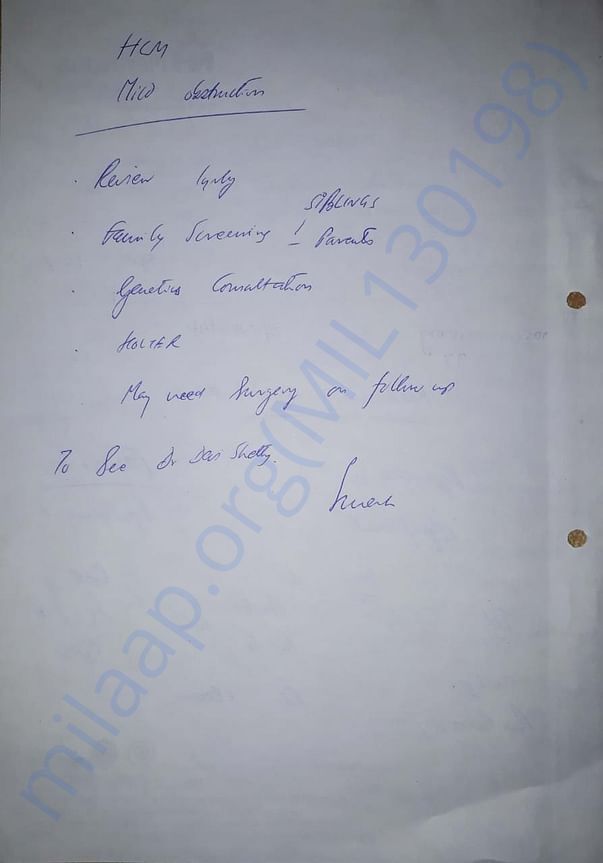 HCM
Mild obstruction
Review 1yrly
Family Screening ! Siblings Parents
Genetics Consultation
HOLTER
May need Surgery on follow up
To See Dr Devi Shetty.
milaap.org(MIL130198)